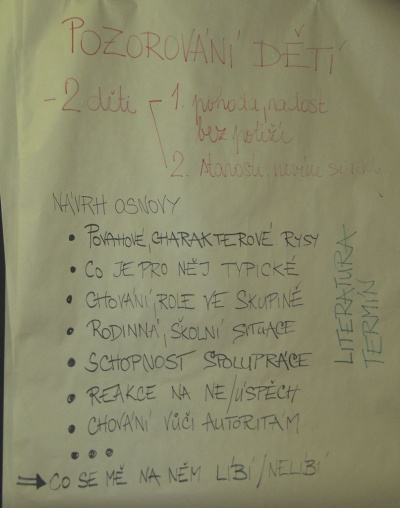 POZOROVÁNÍ DĚTÍ
- 2 děti
1. pohoda, radost
bez potíží
2. starosti, nevíme si
NÁVRH OSNOVY
• POVAHOVÉ, CHARAKTEROVÉ RYSY
• CO JE PRO NĚJ TYPICKÉ
• CHOVÁNÍ, ROLE VE SKUPINĚ
• RODINNÁ, ŠKOLNÍ SITUACE
• SCHOPNOST SPOLUPRÁCE
• REAKCE NA NE/ÚSPĚCH
• CHOVÁNÍ VŮČI AUTORITÁM
• • •
⇒ CO SE MĚ NA NĚM LÍBÍ/NELÍBÍ
LITERATURA
TERMÍN